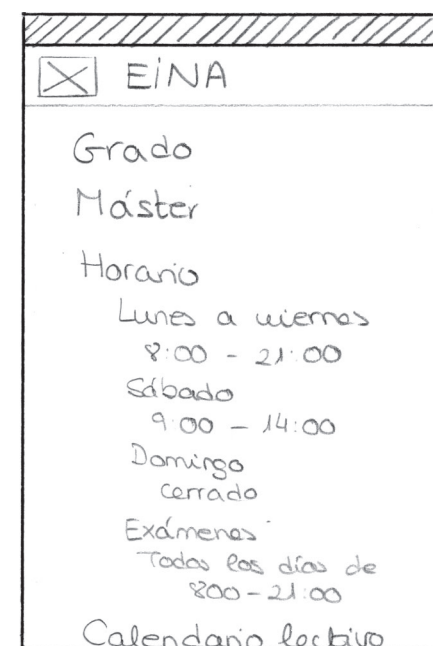 EINA
Grado
Máster
Horario
Lunes a viernes
8:00 - 21:00
Sábado
9:00 - 14:00
Domingo
cerrado
Exámenes
Todos los días de
800-21:00
Calendario lectivo